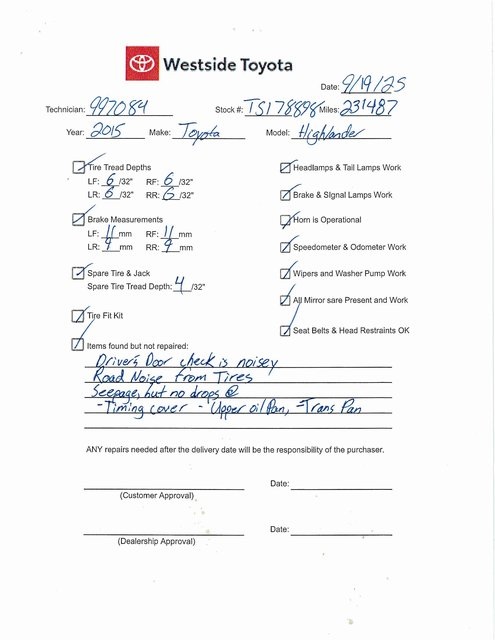 TOYOTA Westside Toyota
Date: 9/19/25
Technician: 997084 Stock #: TS178898 Miles: 231487
Year: 2015 Make: Toyota Model: Highlander
Tire Tread Depths
LF: 6/32" RF: 6/32"
LR: 6/32" RR: 6/32"
Brake Measurements
LF: 11 mm RF: 11 mm
LR: 9 mm RR: 9 mm
Spare Tire & Jack
Spare Tire Tread Depth: 4/32"
Tire Fit Kit
Items found but not repaired:
Headlamps & Tail Lamps Work
Brake & SIgnal Lamps Work
Horn is Operational
Speedometer & Odometer Work
Wipers and Washer Pump Work
All Mirror sare Present and Work
Seat Belts & Head Restraints OK
Drivers Door check is noisey
Road Noise from Tires
Seepage, but no drops @
-Timing cover - Upper oil Pan, -Trans Pan
ANY repairs needed after the delivery date will be the responsibility of the purchaser.
Date:
(Customer Approval)
Date:
(Dealership Approval)